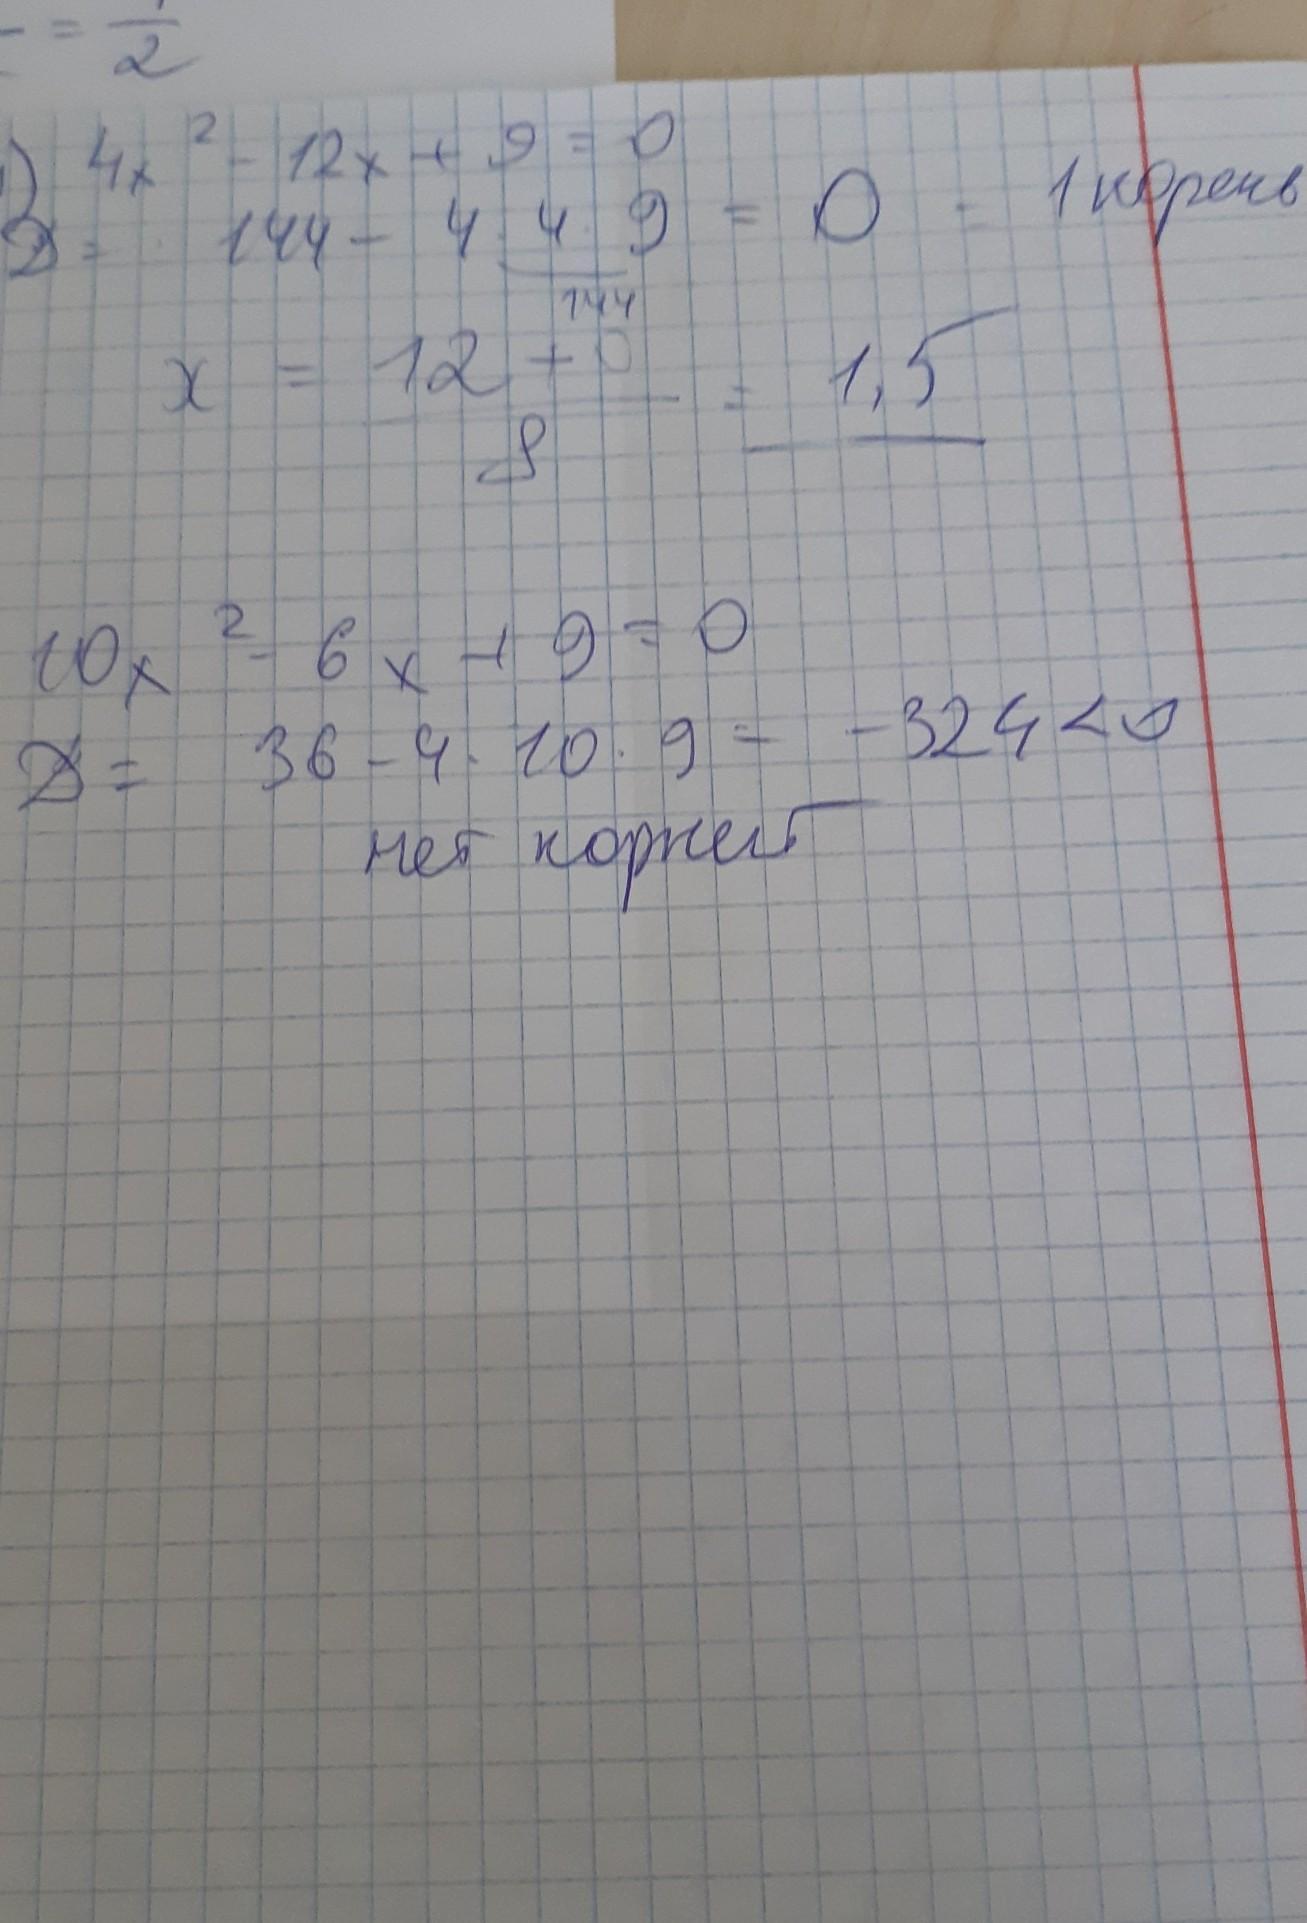 = 1/2
1) 4x² - 12x + 9 = 0
D = 144 - 4·4·9 = 0 - 1 корень
144
x = (12 + 0)/8 = 1,5
10x² - 6x + 9 = 0
D = 36 - 4·10·9 = -324 < 0
нет корней